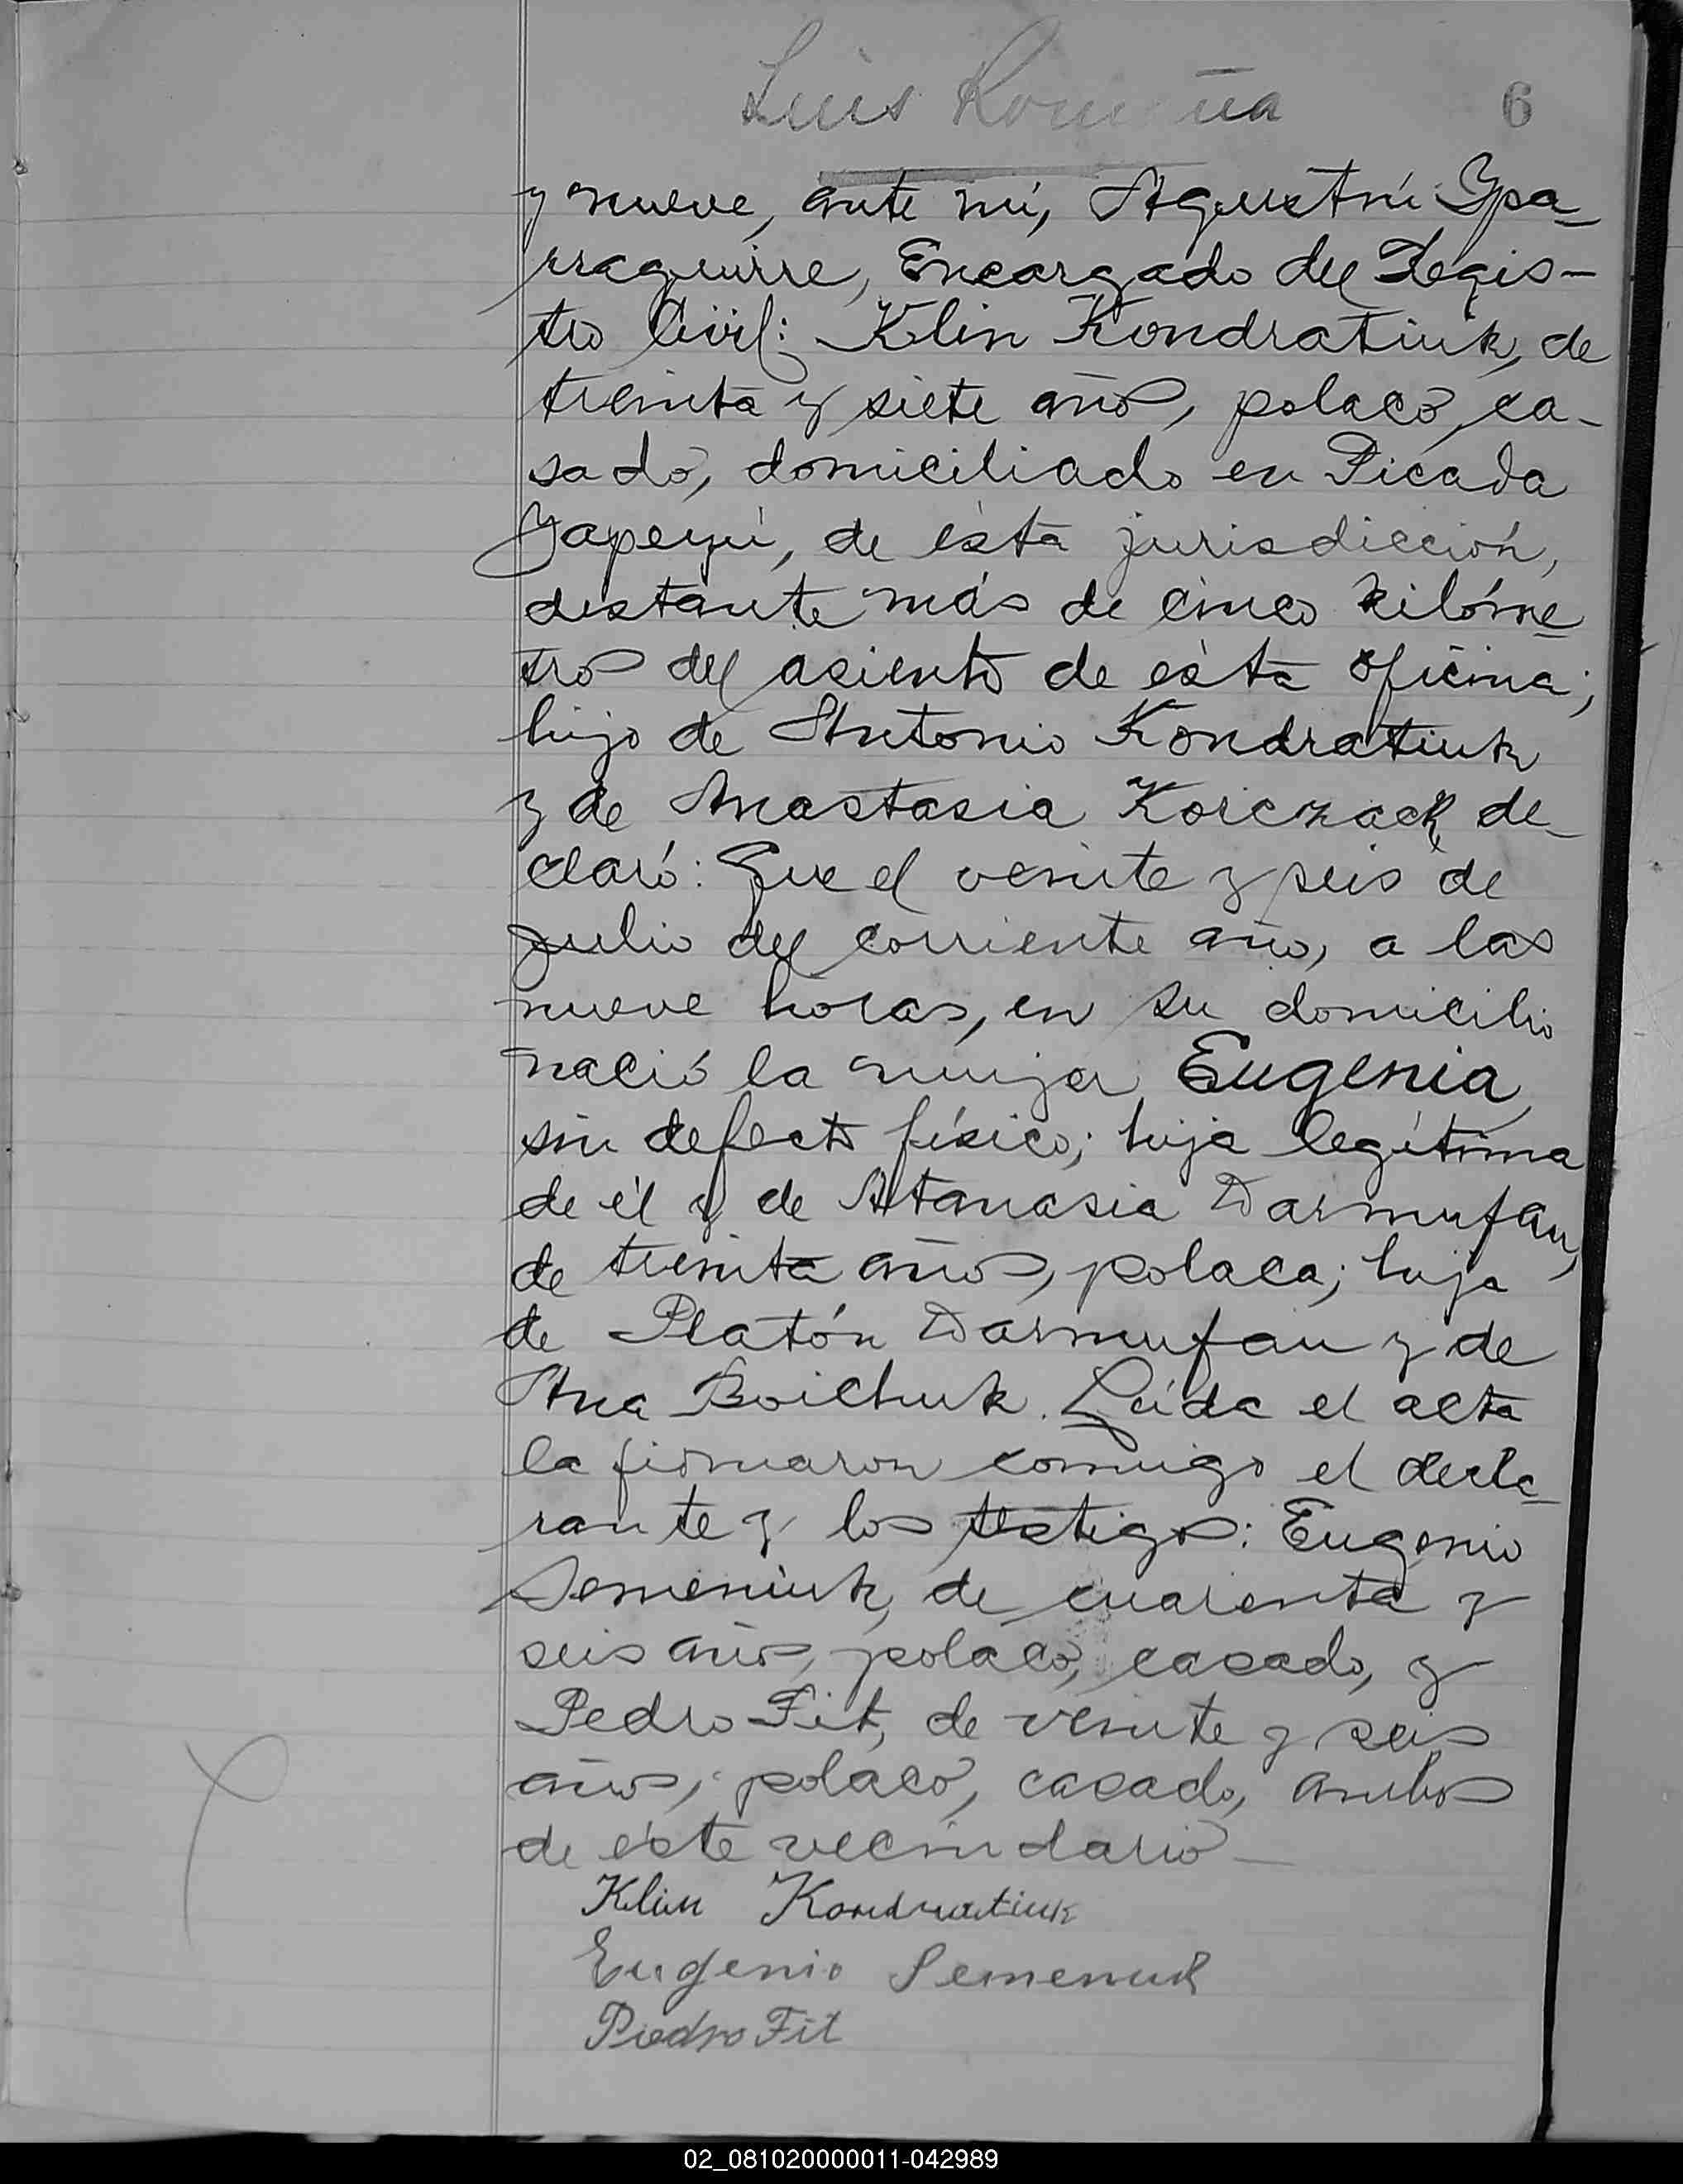 Luis
6
y nueve, ante mí, Agustín Ypa-
rraguirre, Encargado del Regis-
tro Civil: Klin Kondratiuk, de
treinta y siete años, polaco, ca-
sado, domiciliado en Picada
Yapeyú, de ésta jurisdicción,
distante más de cinco kilóme-
tros del asiento de ésta oficina;
hijo de Antonio Kondratiuk
y de Anastasia Korczack, de-
claró: Que el veinte y seis de
Julio del corriente año, a las
nueve horas, en su domicilio
nació la mujer Eugenia,
sin defecto físico; hija legítima
de él y de Atanasia Darmufan,
de treinta años, polaca; hija
de Platón Darmufan y de
Ana Boichuk. Leída el acta
la firmaron conmigo el decla-
rante y los testigos: Eugenio
Semeniuk, de cuarenta y
seis años, polaco, casado, y
Pedro Fit, de veinte y seis
años, polaco, casado, ambos
de éste vecindario
Klim Kondratiuk
Eugenio Semenuk
Piedro Fit
02_081020000011-042989